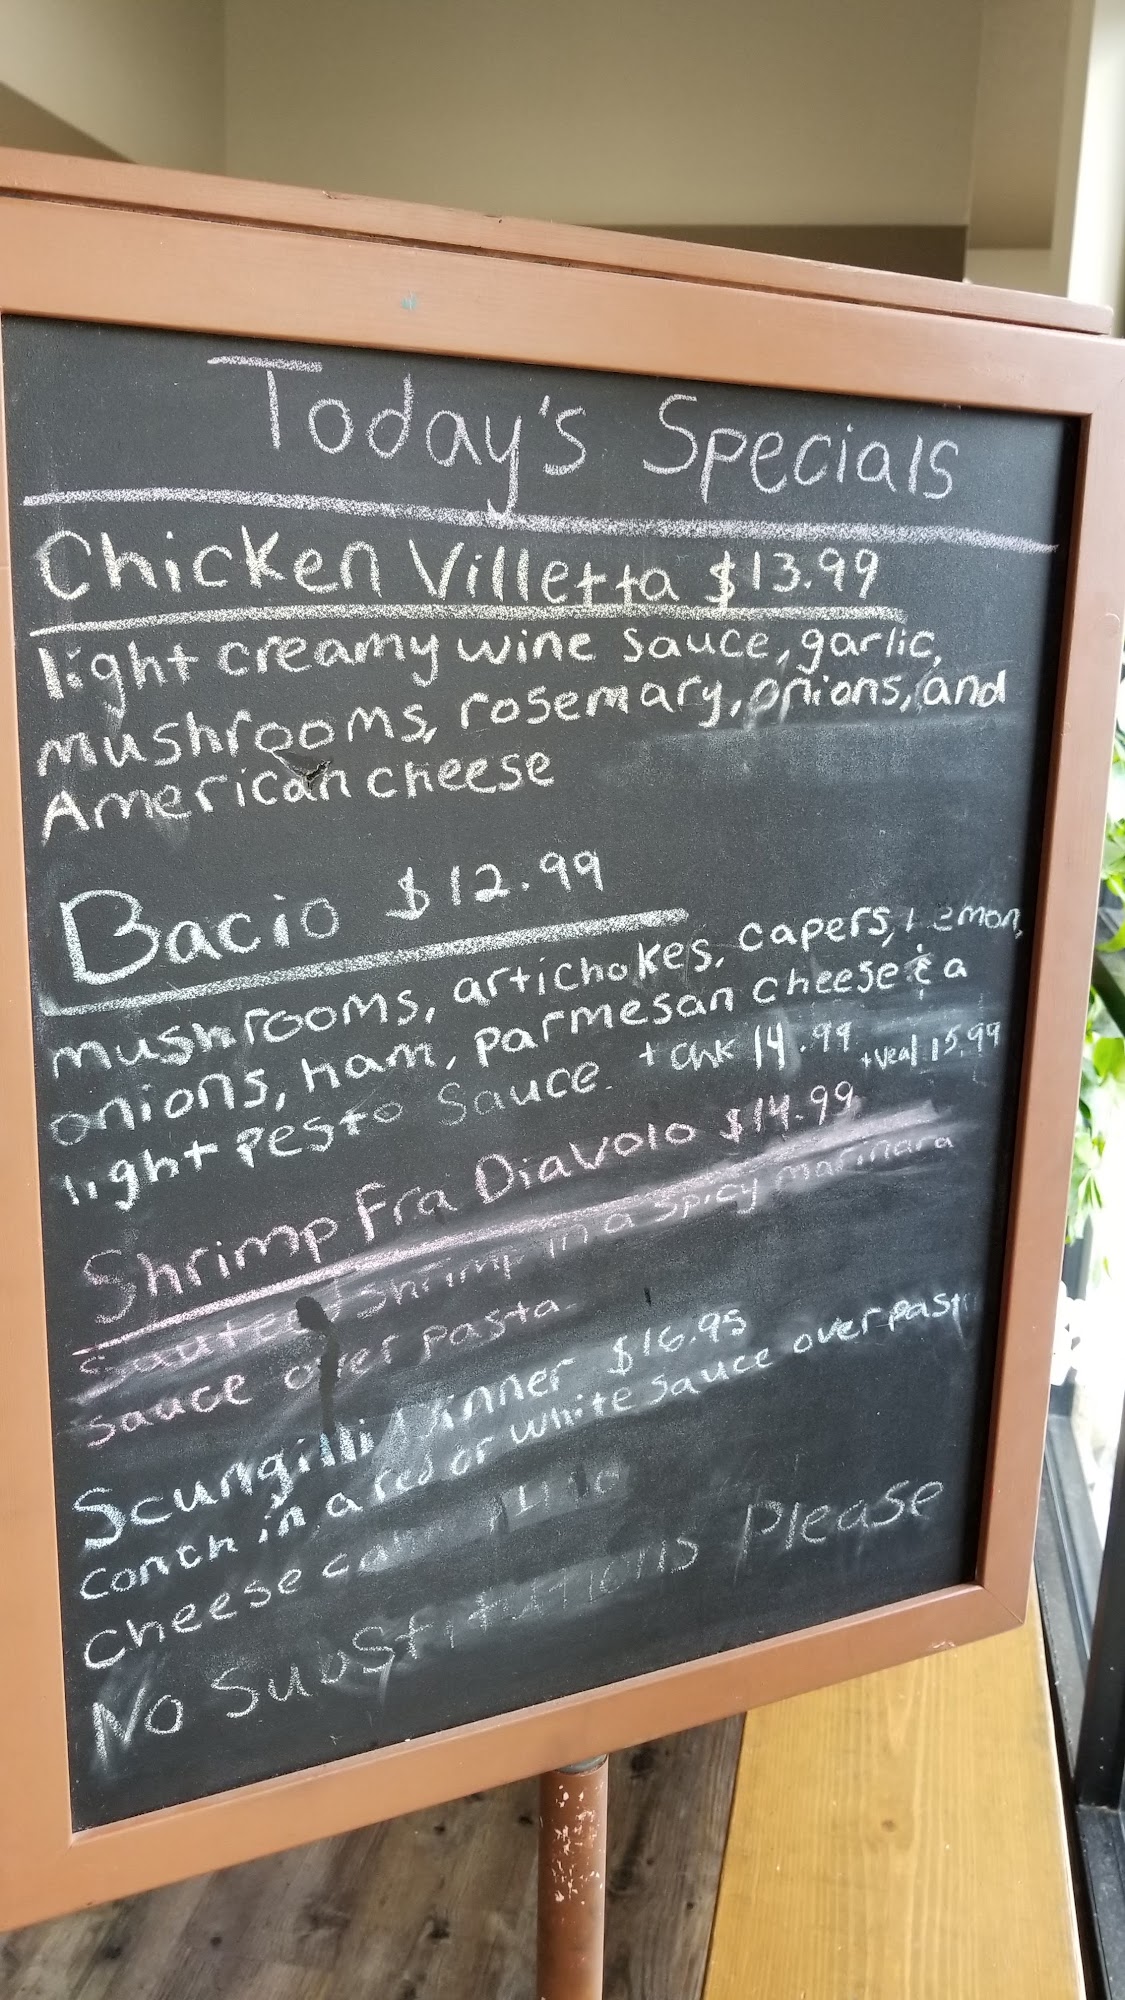 Today's Specials
Chicken Villetta $13.99
light creamy wine sauce, garlic,
mushrooms, rosemary, onions, and
American cheese
Bacio $12.99
mushrooms, artichokes, capers, Lemon,
onions, ham, parmesan cheese & a
light pesto sauce. + Chk 14.99 + Veal 15.99
Shrimp Fra Diavolo $14.99
Sauteed shrimp in a spicy marinara
sauce over pasta.
Scungilli Dinner $16.95
Conch in a red or white sauce over pasta
Cheese
No Substitutions Please